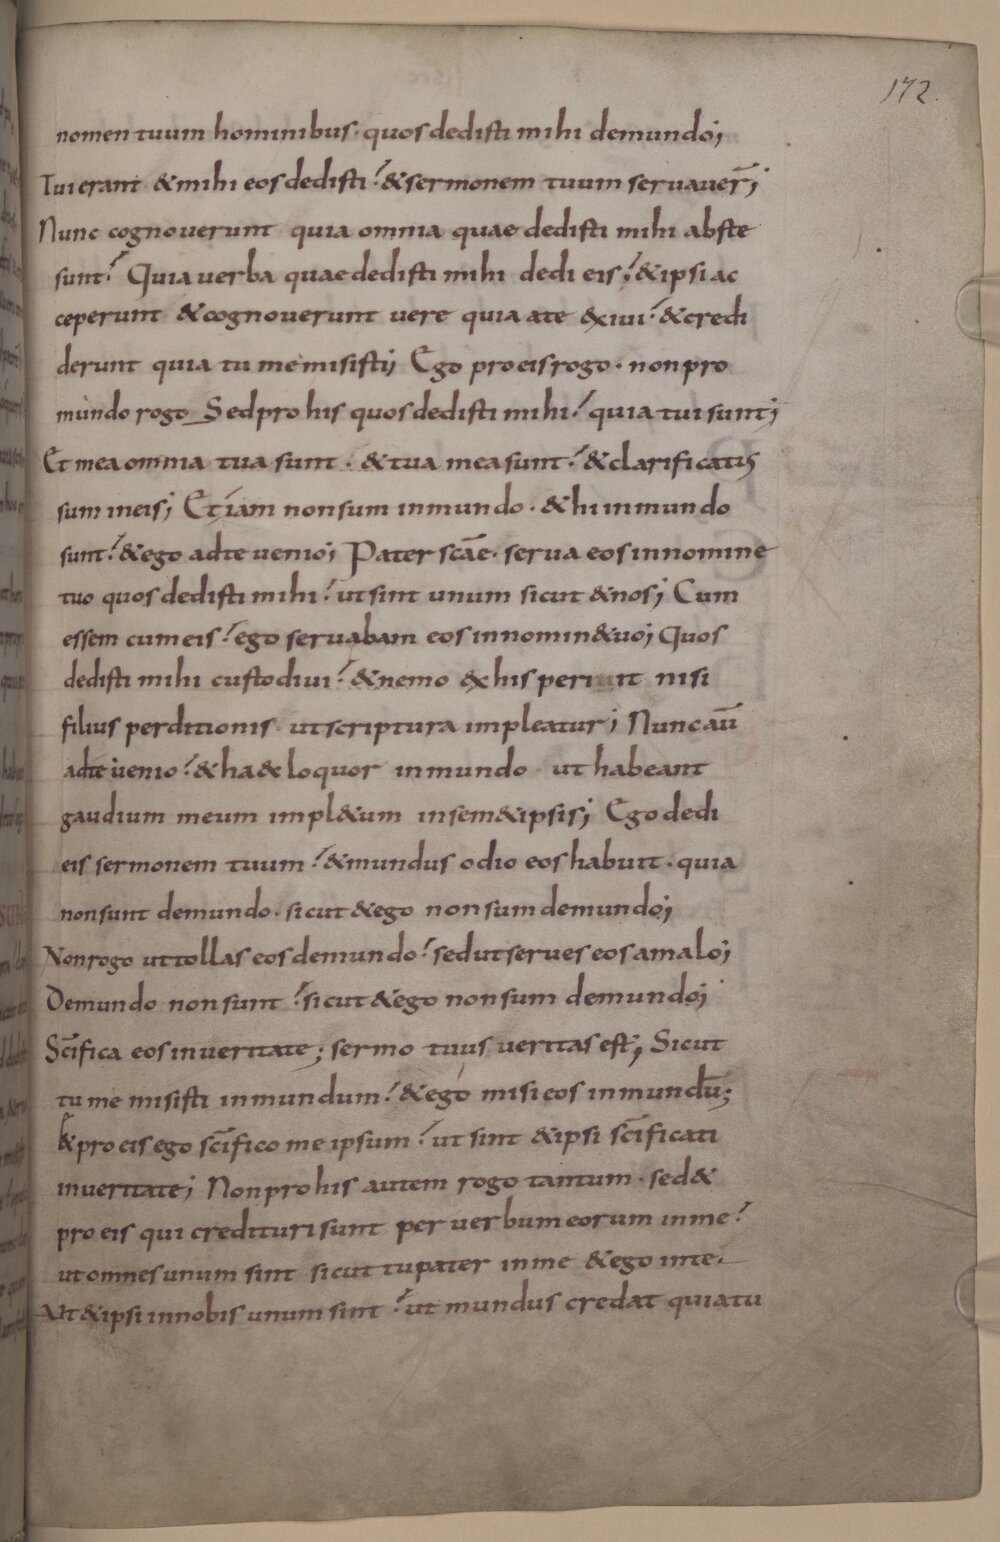 172.
nomen tuum hominibus· quos dedisti mihi demundo;
Tui erant &mihi eos dedisti? &sermonem tuum servaver̄;
Nunc cognoverunt quia omnia quae dedisti mihi abste
sunt? Quia verba quae dedisti mihi dedi eis? &ipsi ac
ceperunt &cognoverunt vere quia ate &xivi? &credi
derunt quia tu me misisti; Ego pro eis rogo· non pro
mundo rogo Sed pro his quos dedisti mihi? quia tui sunt;
Et mea omnia tua sunt· &tua mea sunt? &clarificatus
sum ineis; Et iam non sum inmundo· &hi inmundo
sunt? &ego adte venio; Pater scāe· serva eos innomine
tuo quos dedisti mihi? ut sint unum sicut &nos; Cum
essem cum eis? ego servabam eos innomin&uo; Quos
dedisti mihi custodivi? &nemo &xhis periit nisi
filius perditionis· ut scriptura impleatur; Nunc aū
adte venio? &ha&c loquor inmundo ut habeant
gaudium meum impl&um insem&ipsis; Ego dedi
eis sermonem tuum? &mundus odio eos habuit· quia
non sunt demundo· sicut &ego non sum demundo;
Non rogo ut tollas eos demundo? sed ut serves eos amalo;
Demundo non sunt? sicut &ego non sum demundo;
Sc̄ifica eos inveritate; sermo tuus veritas est; Sicut
tu me misisti inmundum? &ego misi eos inmundū;
&pro eis ego sc̄ifico me ipsum? ut sint &ipsi sc̄ificati
inveritate; Non pro his autem rogo tantum· sed&
pro eis qui credituri sunt per verbum eorum inme?
ut omnes unum sint sicut tu pater inme &ego inte·
Ut &ipsi innobis unum sint? ut mundus credat quia tu